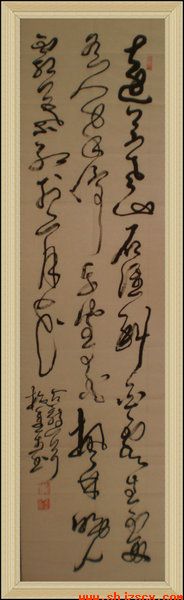 遠上寒山石徑斜白雲生處
有人家停車坐愛楓林晚
霜葉紅於二月花